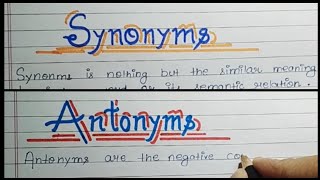 Synonyms
Synonms is nothing but the similar meaning
its semantic relation.
Antonyms
Antonyms are the negative co